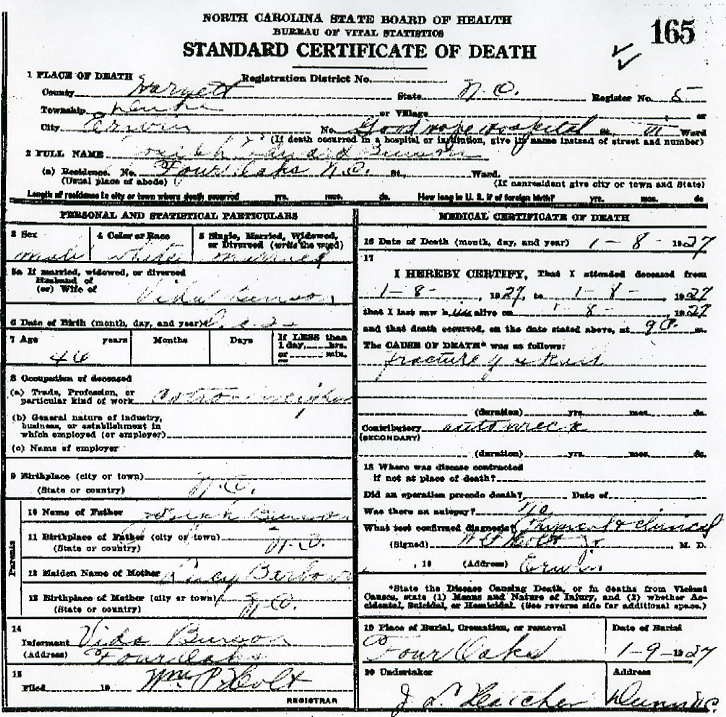 NORTH CAROLINA STATE BOARD OF HEALTH
BUREAU OF VITAL STATISTICS
STANDARD CERTIFICATE OF DEATH
165
1 PLACE OF DEATH Registration District No.
County Harnett State N.C. Register No. 5
Township Duke or Village or
City Erwin No. Good Hope Hospital St. Ward
(If death occurred in a hospital or institution, give its name instead of street and number)
2 FULL NAME
(a) Residence. No. Four Oaks N.C. St., Ward.
(Usual place of abode) (If nonresident give city or town and State)
Length of residence in city or town where death occurred yrs. mos. ds. How long in U. S. if of foreign birth? yrs. mos. ds.
PERSONAL AND STATISTICAL PARTICULARS
3 Sex 4 Color or Race 5 Single, Married, Widowed, or Divorced (write the word)
male white married
5a If married, widowed, or divorced
Husband of
(or) Wife of Vida
6 Date of Birth (month, day, and year)
7 Age years Months Days If LESS than 1 day, hrs. or min.
46
8 Occupation of deceased
(a) Trade, Profession, or
particular kind of work Cotton weigher
(b) General nature of industry,
business, or establishment in
which employed (or employer)
(c) Name of employer
9 Birthplace (city or town)
(State or country) N.C.
Parents
10 Name of Father
11 Birthplace of Father (city or town)
(State or country) N.C.
12 Maiden Name of Mother Lucy Barbour
13 Birthplace of Mother (city or town)
(State or country) N.C.
14
Informant Vida
(Address) Four Oaks
15
Filed 19 Wm P Holt
REGISTRAR
MEDICAL CERTIFICATE OF DEATH
16 Date of Death (month, day, and year) 1-8-1927
17
I HEREBY CERTIFY, That I attended deceased from
1-8-, 1927, to 1-8-, 1927
that I last saw him alive on 1-8-, 1927
and that death occurred, on the date stated above, at 9P.m.
The CAUSE OF DEATH* was as follows:
fracture of skull
(duration) yrs. mos. ds.
Contributory auto wreck
(SECONDARY)
(duration) yrs. mos. ds.
18 Where was disease contracted
if not at place of death?
Did an operation precede death? Date of
Was there an autopsy? No
What test confirmed diagnosis? Physical & clinical
(Signed) M. D.
, 19 (Address) Erwin
*State the Disease Causing Death, or in deaths from Violent
Causes, state (1) Means and Nature of Injury, and (2) whether Ac-
cidental, Suicidal, or Homicidal. (Use reverse side for additional space.)
19 Place of Burial, Cremation, or removal Date of Burial
Four Oaks 1-9-1927
20 Undertaker Address
J. L. Hatcher Dunn N.C.